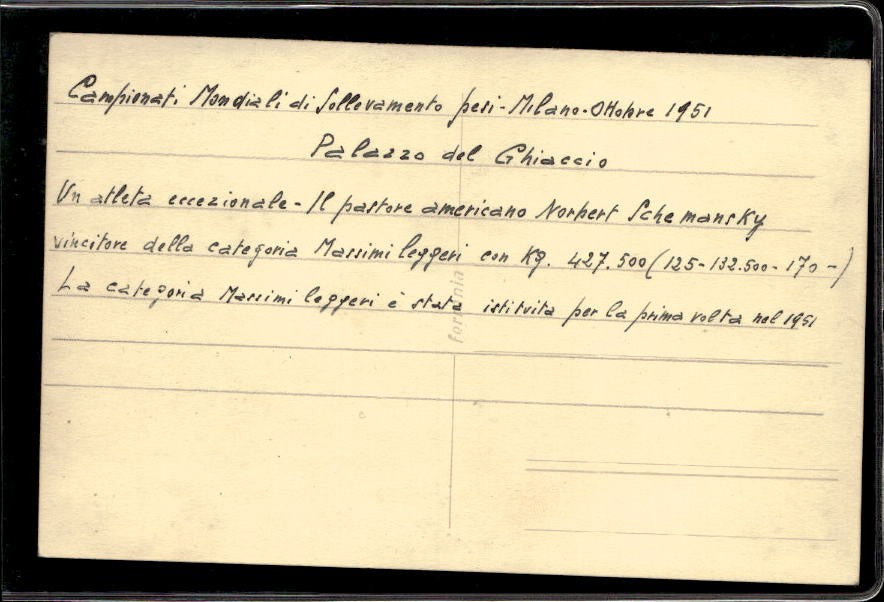 Campionati Mondiali di Sollevamento pesi - Milano - Ottobre 1951
Palazzo del Ghiaccio
Un atleta eccezionale - Il pastore americano Norbert Schemansky
vincitore della categoria Massimi leggeri con Kg. 427.500 (125 - 132.500 - 170 -)
La categoria Massimi leggeri è stata istituita per la prima volta nel 1951
ferrania